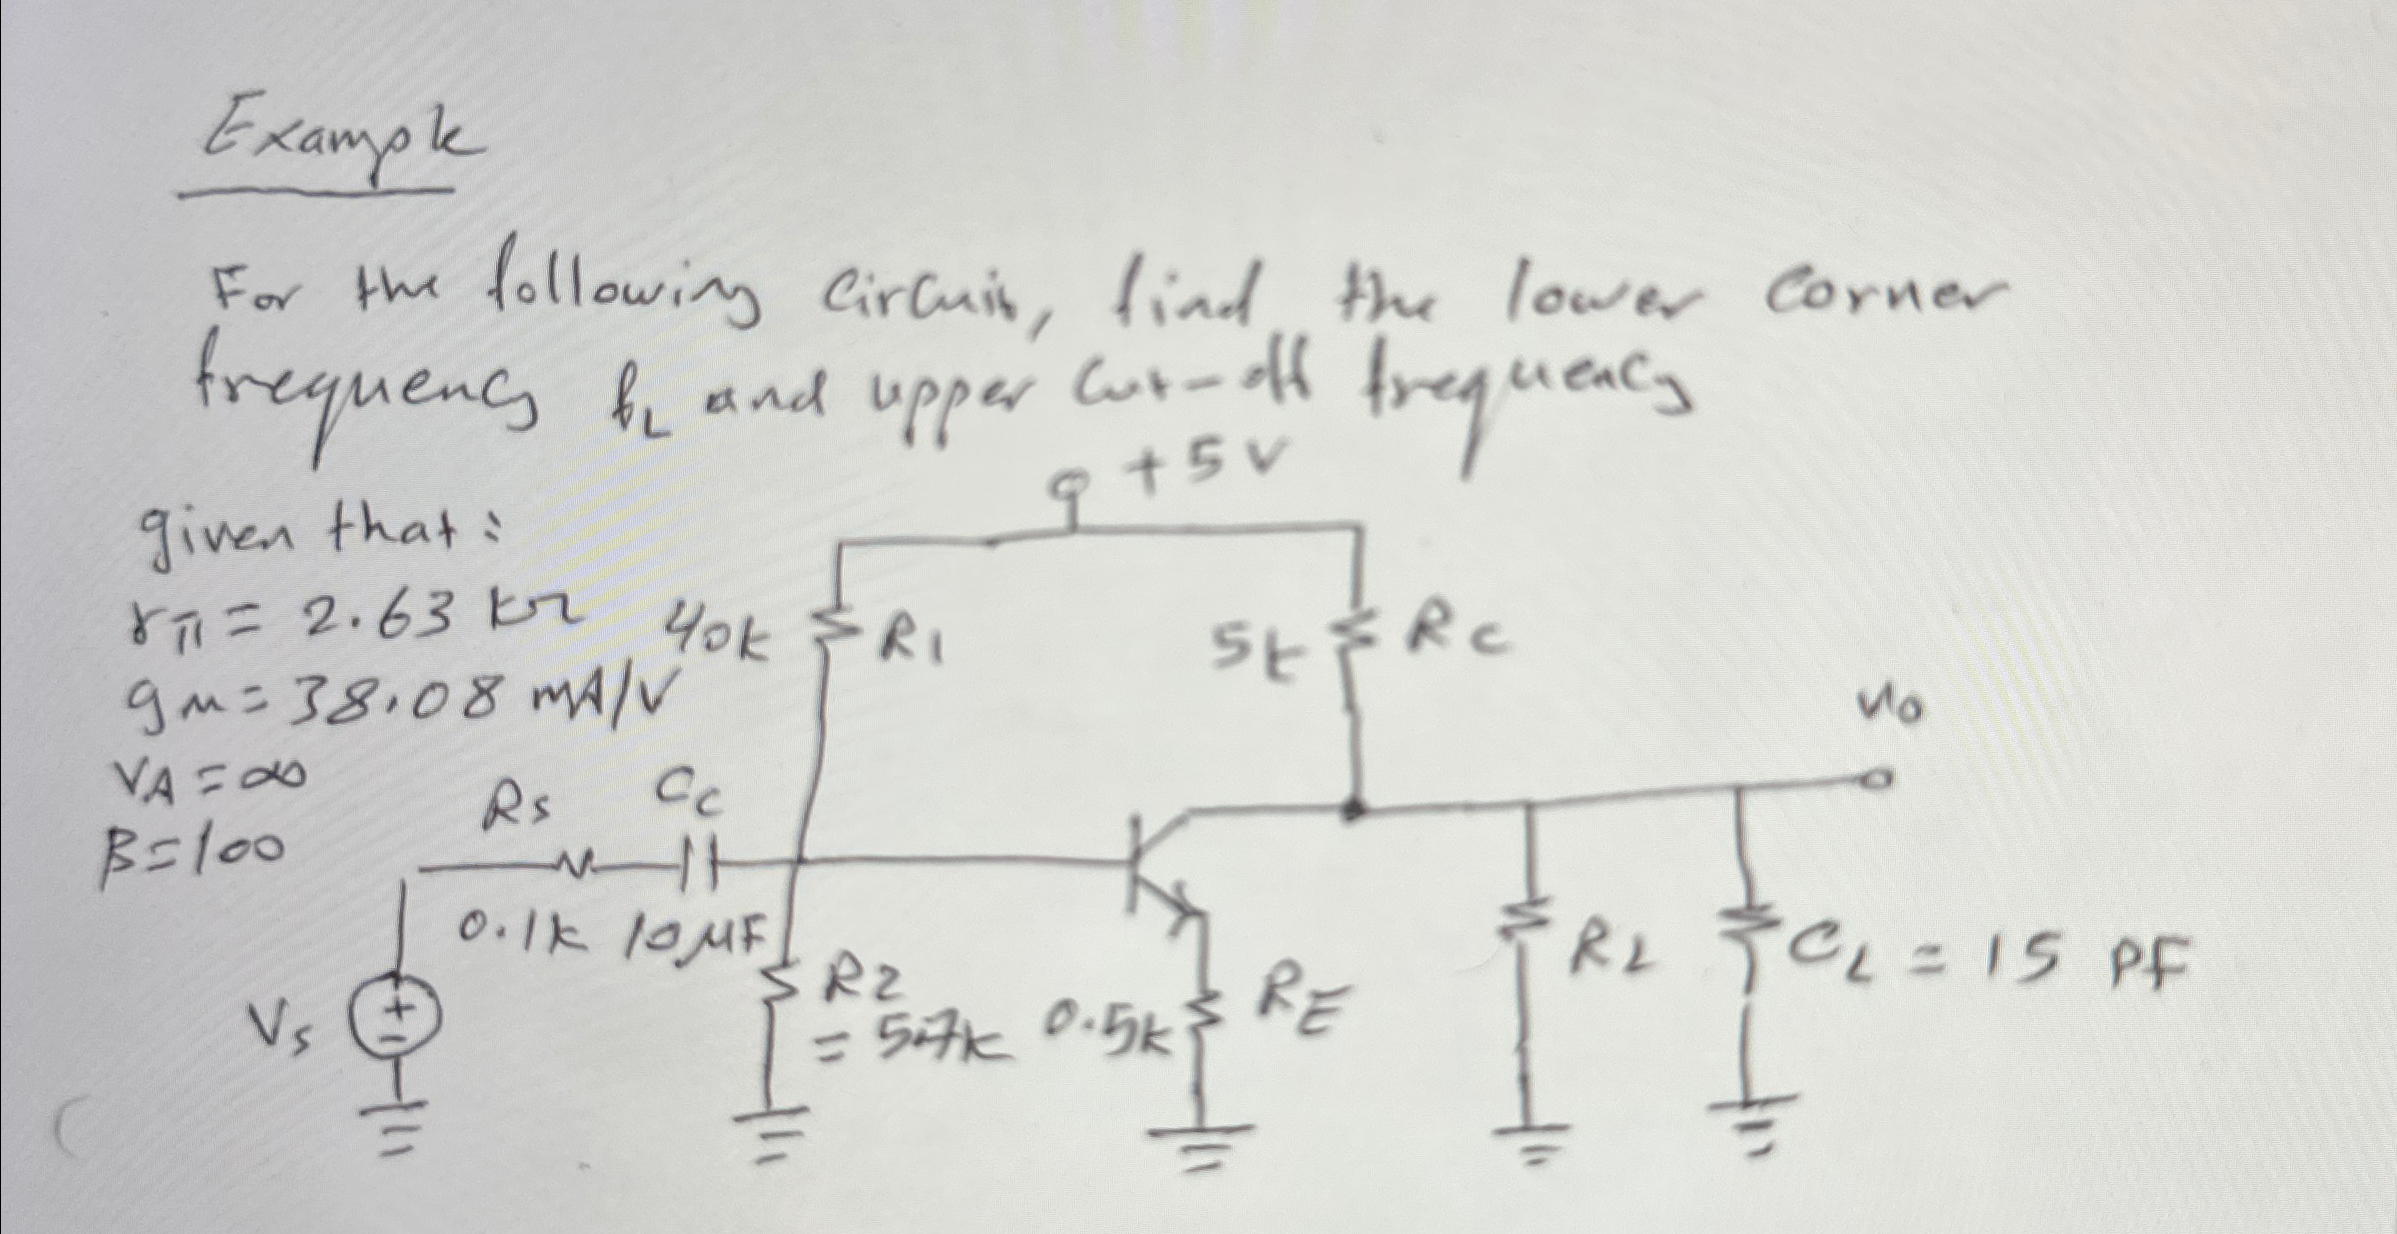 Example
For the following circuit, find the lower corner
frequency fL and upper cut-off frequency
+5V
given that:
rπ = 2.63 kΩ
gm = 38.08 mA/V
VA = ∞
β = 100
40k
R1
5k
RC
Vo
Rs
Cc
0.1k
10μF
Vs
+
-
R2
= 5.7k
0.5k
RE
RL
CL = 15 PF